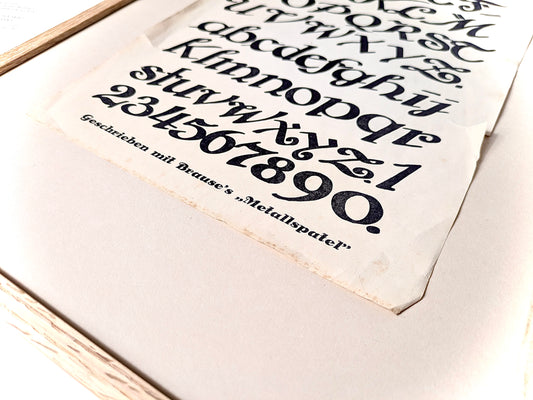 K L M
O P Q R S T
U V W X Y Z.
abcdefghij
klmnopqr
stuvwxyz. 1
234567890.
Geschrieben mit Brause's „Metallspatel"